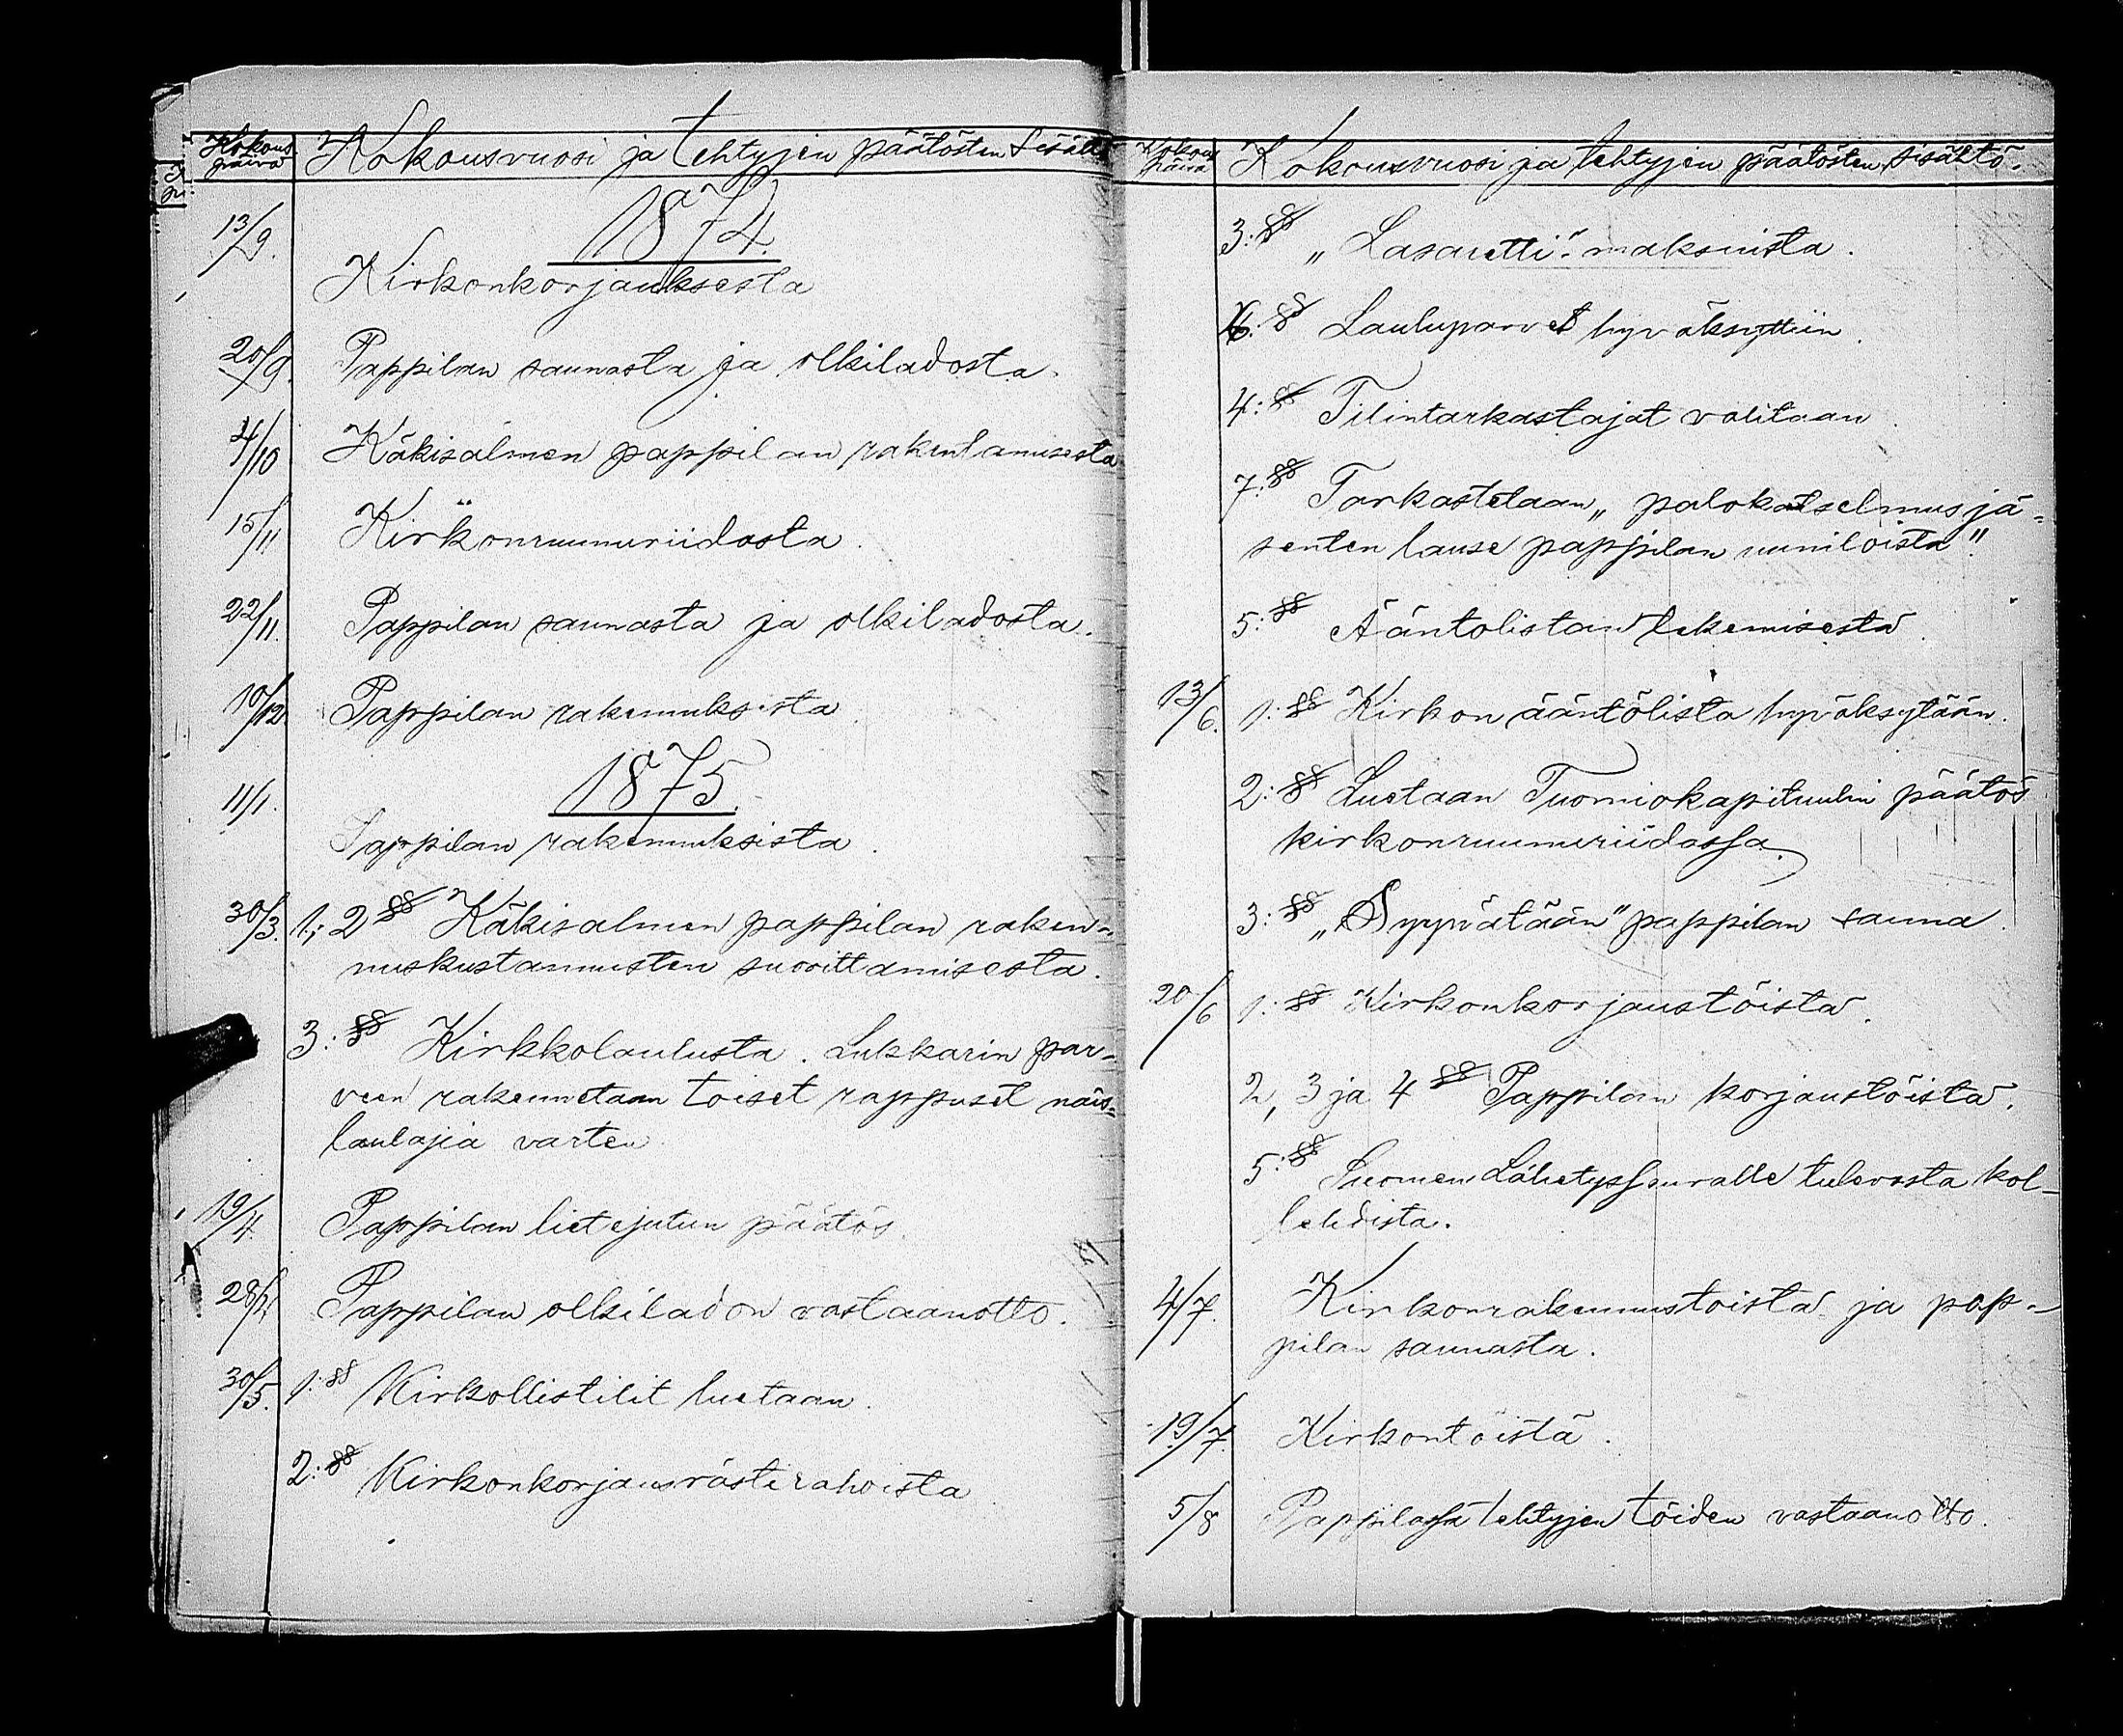 Kokous
päivä
Kokousvuosi ja tehtyjen päätösten sisältö
1874.
13/9.
Kirkonkorjauksesta
20/9. Pappilan saunasta ja olkiladosta.
4/10 Käkisalmen pappilan rakentamisesta
15/11 Kirkonruunuriidasta.
22/11. Pappilan saunasta ja olkiladosta.
10/12. Pappilan rakennuksista.
1875.
11/1.
Pappilan rakennuksista.
30/3. 1; 2 §§ Käkisalmen pappilan raken-
nuskustannusten suorittamisesta.
3: §§ Kirkkolaulusta. Lukkarin par-
veen rakennetaan toiset rappuset näis-
laulajia varten
19/4. Pappilan lietejutun päätös.
28/4. Pappilan olkiladon vastaanotto.
30/5. 1: §§ Kirkollistilit luetaan.
2: §§ Kirkonkorjausrästirahoista
Kokous
päivä
Kokousvuosi ja tehtyjen päätösten sisältö.
3: §§ „Lasaretti"-maksuista.
6: § Lauluparvet hyväksyttiin.
4: §§ Tilintarkastajat valitaan.
7: §§ Tarkastetaan „palokatselmusjä-
senten lause pappilan uuniloista".
5: §§ Ääntolistan tekemisestä.
13/6. 1: §§ Kirkon ääntölista hyväksytään.
2: §§ Luetaan Tuomiokapituulin päätös
kirkonruunuriidassa.
3: §§ „Syyvätään" pappilan sauna.
20/6 1: §§ Kirkonkorjaustöista.
2, 3 ja 4 §§ Pappilan korjaustöista.
5: §§ Suomen Lähetysseuralle tulevasta kol-
lehdista.
4/7. Kirkonrakennustoista ja pap-
pilan saunasta.
19/7. Kirkontöistä.
5/8 Pappilassa tehtyjen töiden vastaanotto.